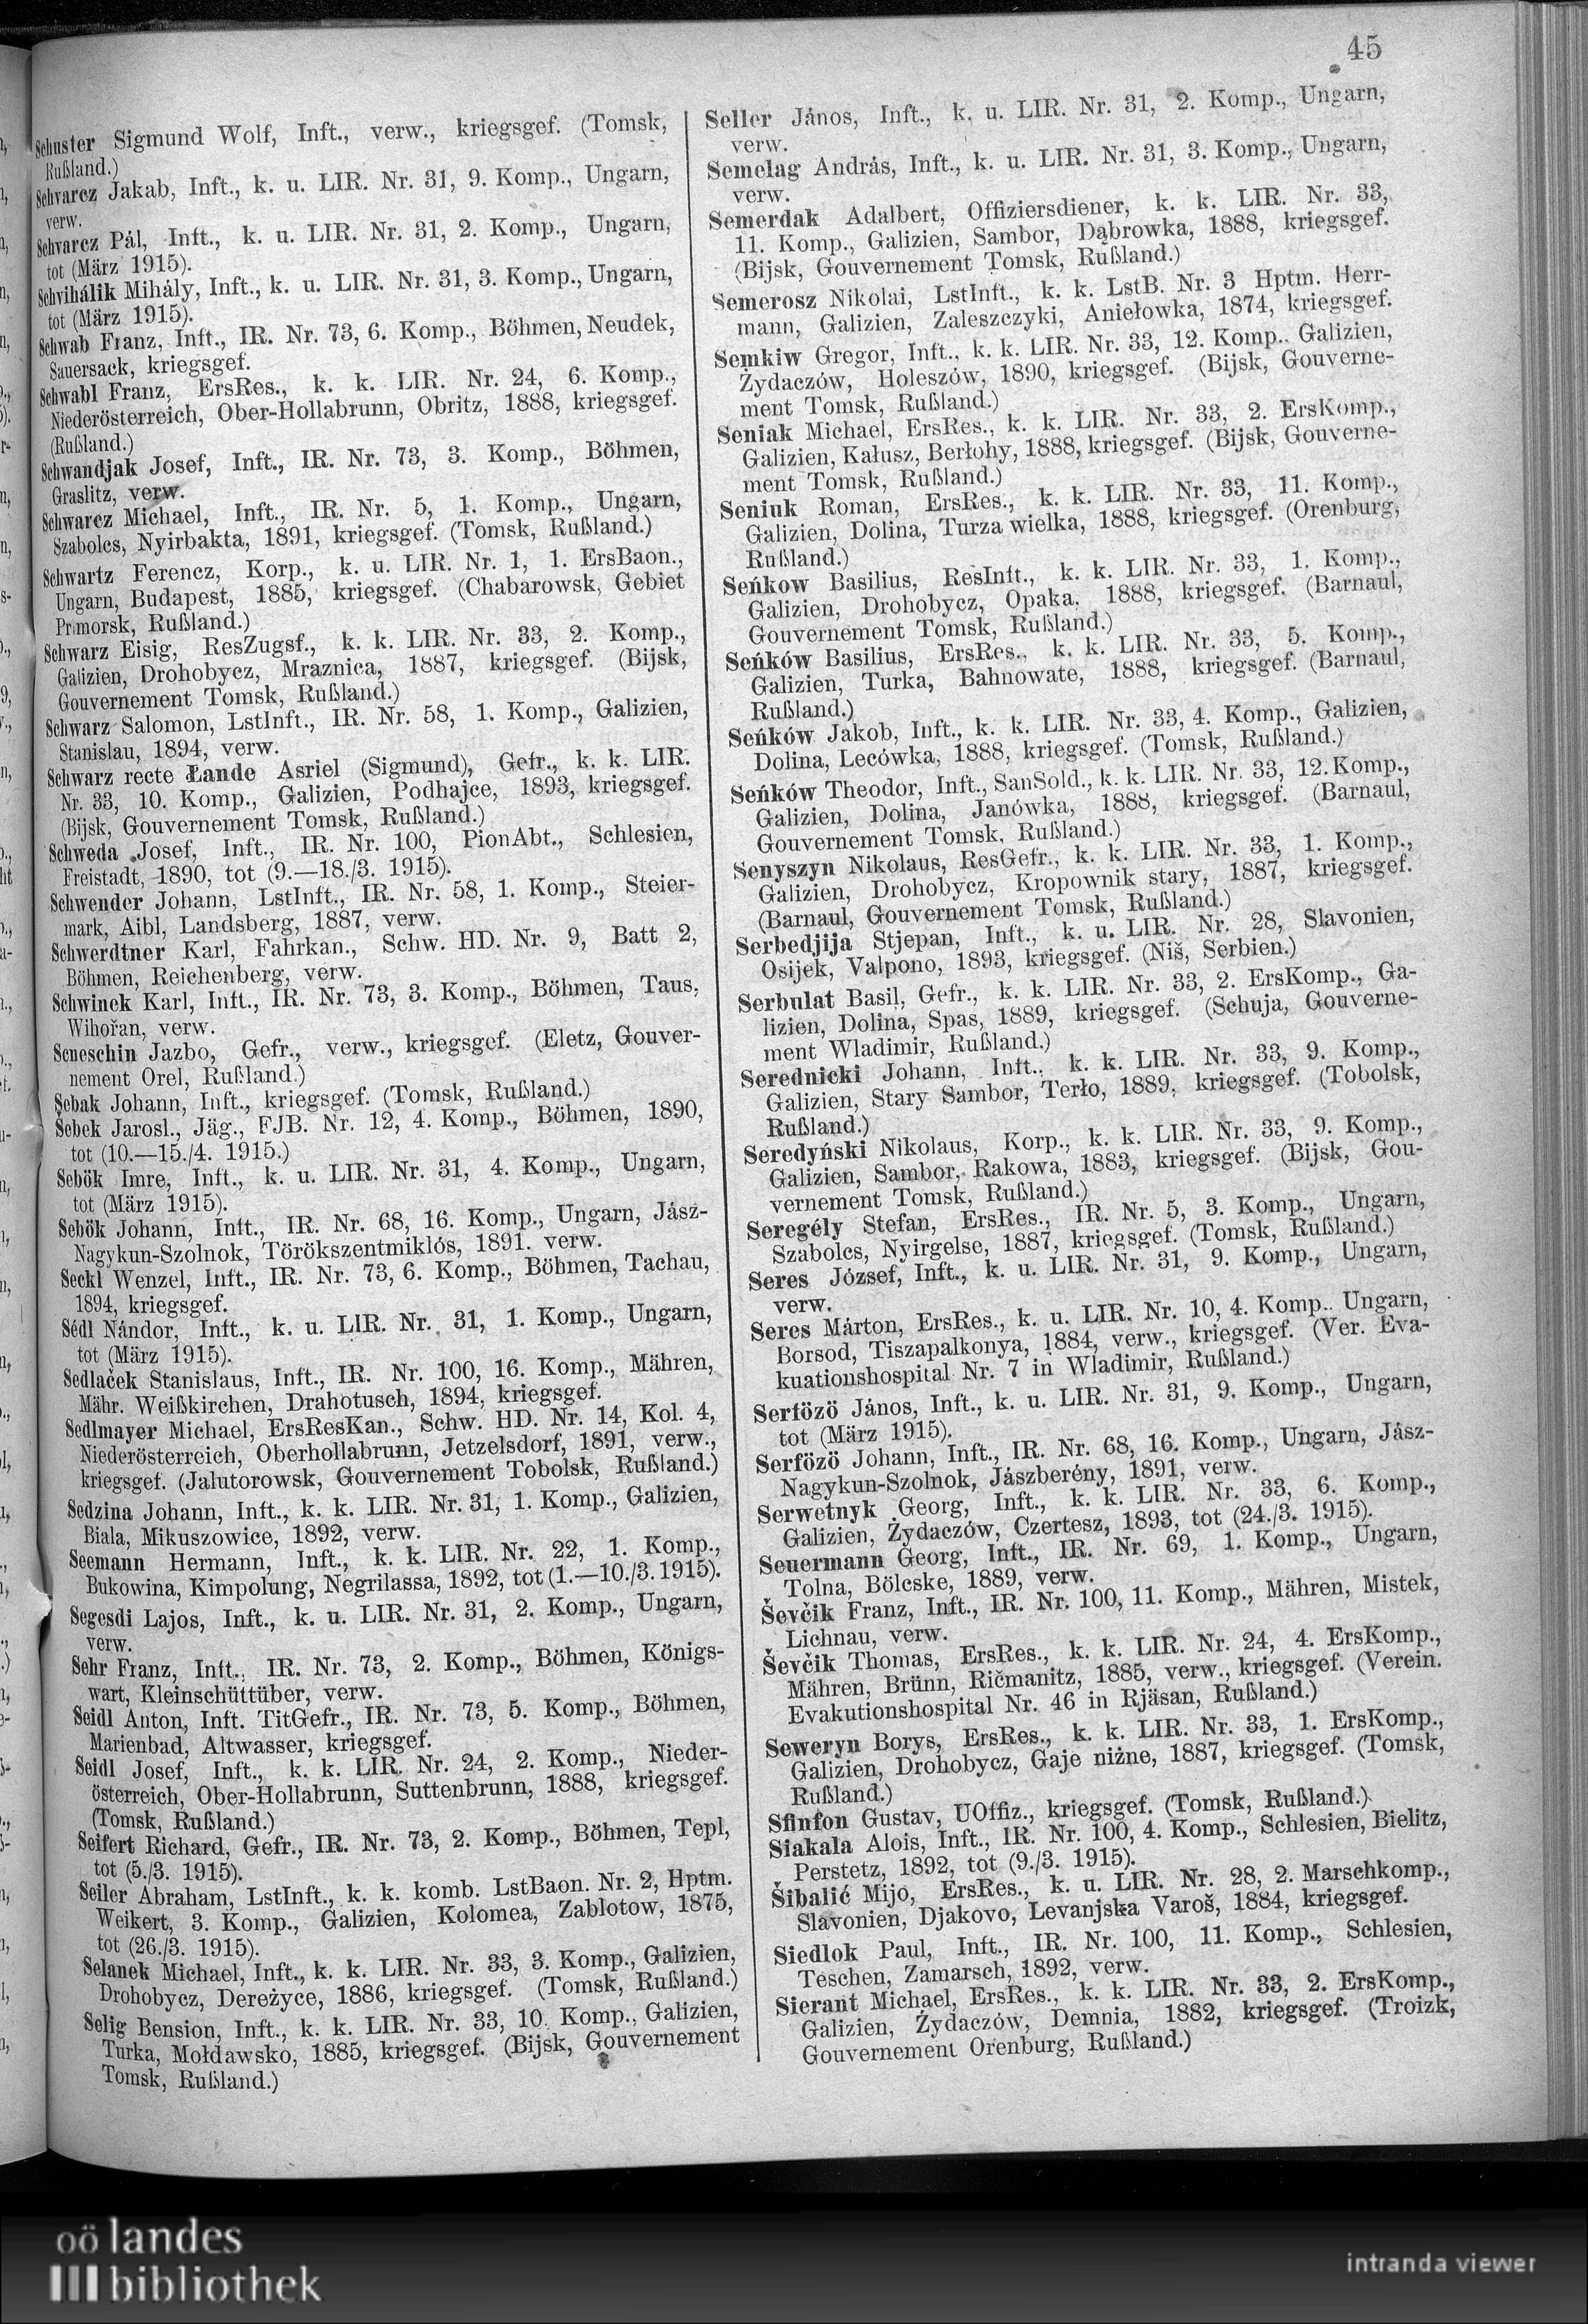 45
Schuster Sigmund Wolf, Inft., verw., kriegsgef. (Tomsk,
Rußland.)
Schvarcz Jakab, Inft., k. u. LIR. Nr. 31, 9. Komp., Ungarn,
verw.
Schvarcz Pál, Inft., k. u. LIR. Nr. 31, 2. Komp., Ungarn,
tot (März 1915).
Schvihálik Mihály, Inft., k. u. LIR. Nr. 31, 3. Komp., Ungarn,
tot (März 1915).
Schwab Franz, Inft., IR. Nr. 73, 6. Komp., Böhmen, Neudek,
Sauersack, kriegsgef.
Schwabl Franz, ErsRes., k. k. LIR. Nr. 24, 6. Komp.,
Niederösterreich, Ober-Hollabrunn, Obritz, 1888, kriegsgef.
(Rußland.)
Schwandjak Josef, Inft., IR. Nr. 73, 3. Komp., Böhmen,
Graslitz, verw.
Schwarcz Michael, Inft., IR. Nr. 5, 1. Komp., Ungarn,
Szabolcs, Nyirbakta, 1891, kriegsgef. (Tomsk, Rußland.)
Schwartz Ferencz, Korp., k. u. LIR. Nr. 1, 1. ErsBaon.,
Ungarn, Budapest, 1885, kriegsgef. (Chabarowsk, Gebiet
Primorsk, Rußland.)
Schwarz Eisig, ResZugsf., k. k. LIR. Nr. 33, 2. Komp.,
Galizien, Drohobycz, Mraznica, 1887, kriegsgef. (Bijsk,
Gouvernement Tomsk, Rußland.)
Schwarz Salomon, LstInft., IR. Nr. 58, 1. Komp., Galizien,
Stanislau, 1894, verw.
Schwarz recte Łande Asriel (Sigmund), Gefr., k. k. LIR.
Nr. 33, 10. Komp., Galizien, Podhajce, 1893, kriegsgef.
(Bijsk, Gouvernement Tomsk, Rußland.)
Schweda Josef, Inft., IR. Nr. 100, PionAbt., Schlesien,
Freistadt, 1890, tot (9.—18./3. 1915).
Schwender Johann, LstInft., IR. Nr. 58, 1. Komp., Steier-
mark, Aibl, Landsberg, 1887, verw.
Schwerdtner Karl, Fahrkan., Schw. HD. Nr. 9, Batt 2,
Böhmen, Reichenberg, verw.
Schwinek Karl, Inft., IR. Nr. 73, 3. Komp., Böhmen, Taus,
Wihořan, verw.
Scneschin Jazbo, Gefr., verw., kriegsgef. (Eletz, Gouver-
nement Orel, Rußland.)
Šebak Johann, Inft., kriegsgef. (Tomsk, Rußland.)
Šebek Jarosl., Jäg., FJB. Nr. 12, 4. Komp., Böhmen, 1890,
tot (10.—15./4. 1915.)
Sebök Imre, Inft., k. u. LIR. Nr. 31, 4. Komp., Ungarn,
tot (März 1915).
Sebök Johann, Inft., IR. Nr. 68, 16. Komp., Ungarn, Jász-
Nagykun-Szolnok, Törökszentmiklós, 1891. verw.
Seckl Wenzel, Inft., IR. Nr. 73, 6. Komp., Böhmen, Tachau,
1894, kriegsgef.
Sédl Nándor, Inft., k. u. LIR. Nr. 31, 1. Komp., Ungarn,
tot (März 1915).
Sedlaček Stanislaus, Inft., IR. Nr. 100, 16. Komp., Mähren,
Mähr. Weißkirchen, Drahotusch, 1894, kriegsgef.
Sedlmayer Michael, ErsResKan., Schw. HD. Nr. 14, Kol. 4,
Niederösterreich, Oberhollabrunn, Jetzelsdorf, 1891, verw.,
kriegsgef. (Jalutorowsk, Gouvernement Tobolsk, Rußland.)
Sedzina Johann, Inft., k. k. LIR. Nr. 31, 1. Komp., Galizien,
Biala, Mikuszowice, 1892, verw.
Seemann Hermann, Inft., k. k. LIR. Nr. 22, 1. Komp.,
Bukowina, Kimpolung, Negrilassa, 1892, tot (1.—10./3. 1915).
Segesdi Lajos, Inft., k. u. LIR. Nr. 31, 2. Komp., Ungarn,
verw.
Sehr Franz, Inft., IR. Nr. 73, 2. Komp., Böhmen, Königs-
wart, Kleinschüttüber, verw.
Seidl Anton, Inft. TitGefr., IR. Nr. 73, 5. Komp., Böhmen,
Marienbad, Altwasser, kriegsgef.
Seidl Josef, Inft., k. k. LIR. Nr. 24, 2. Komp., Nieder-
österreich, Ober-Hollabrunn, Suttenbrunn, 1888, kriegsgef.
(Tomsk, Rußland.)
Seifert Richard, Gefr., IR. Nr. 73, 2. Komp., Böhmen, Tepl,
tot (5./3. 1915).
Seiler Abraham, LstInft., k. k. komb. LstBaon. Nr. 2, Hptm.
Weikert, 3. Komp., Galizien, Kolomea, Zablotow, 1875,
tot (26./3. 1915).
Selanek Michael, Inft., k. k. LIR. Nr. 33, 3. Komp., Galizien,
Drohobycz, Dereżyce, 1886, kriegsgef. (Tomsk, Rußland.)
Selig Bension, Inft., k. k. LIR. Nr. 33, 10. Komp., Galizien,
Turka, Mołdawsko, 1885, kriegsgef. (Bijsk, Gouvernement
Tomsk, Rußland.)
Seller János, Inft., k. u. LIR. Nr. 31, 2. Komp., Ungarn,
verw.
Semelag András, Inft., k. u. LIR. Nr. 31, 3. Komp., Ungarn,
verw.
Semerdak Adalbert, Offiziersdiener, k. k. LIR. Nr. 33,
11. Komp., Galizien, Sambor, Dąbrowka, 1888, kriegsgef.
(Bijsk, Gouvernement Tomsk, Rußland.)
Semerosz Nikolai, LstInft., k. k. LstB. Nr. 3 Hptm. Herr-
mann, Galizien, Zaleszczyki, Aniełowka, 1874, kriegsgef.
Semkiw Gregor, Inft., k. k. LIR. Nr. 33, 12. Komp., Galizien,
Żydaczów, Holeszów, 1890, kriegsgef. (Bijsk, Gouverne-
ment Tomsk, Rußland.)
Seniak Michael, ErsRes., k. k. LIR. Nr. 33, 2. ErsKomp.,
Galizien, Kałusz, Berłohy, 1888, kriegsgef. (Bijsk, Gouverne-
ment Tomsk, Rußland.)
Seniuk Roman, ErsRes., k. k. LIR. Nr. 33, 11. Komp.,
Galizien, Dolina, Turza wielka, 1888, kriegsgef. (Orenburg,
Rußland.)
Seńkow Basilius, ResInft., k. k. LIR. Nr. 33, 1. Komp.,
Galizien, Drohobycz, Opaka, 1888, kriegsgef. (Barnaul,
Gouvernement Tomsk, Rußland.)
Seńków Basilius, ErsRes., k. k. LIR. Nr. 33, 5. Komp.,
Galizien, Turka, Bahnowate, 1888, kriegsgef. (Barnaul,
Rußland.)
Seńków Jakob, Inft., k. k. LIR. Nr. 33, 4. Komp., Galizien,
Dolina, Lecówka, 1888, kriegsgef. (Tomsk, Rußland.)
Seńków Theodor, Inft., SanSold., k. k. LIR. Nr. 33, 12. Komp.,
Galizien, Dolina, Janówka, 1888, kriegsgef. (Barnaul,
Gouvernement Tomsk, Rußland.)
Senyszyn Nikolaus, ResGefr., k. k. LIR. Nr. 33, 1. Komp.,
Galizien, Drohobycz, Kropownik stary, 1887, kriegsgef.
(Barnaul, Gouvernement Tomsk, Rußland.)
Serbedjija Stjepan, Inft., k. u. LIR. Nr. 28, Slavonien,
Osijek, Valpono, 1893, kriegsgef. (Niš, Serbien.)
Serbulat Basil, Gefr., k. k. LIR. Nr. 33, 2. ErsKomp., Ga-
lizien, Dolina, Spas, 1889, kriegsgef. (Schuja, Gouverne-
ment Wladimir, Rußland.)
Serednicki Johann, Inft., k. k. LIR. Nr. 33, 9. Komp.,
Galizien, Stary Sambor, Terło, 1889, kriegsgef. (Tobolsk,
Rußland.)
Seredyński Nikolaus, Korp., k. k. LIR. Nr. 33, 9. Komp.,
Galizien, Sambor, Rakowa, 1883, kriegsgef. (Bijsk, Gou-
vernement Tomsk, Rußland.)
Seregély Stefan, ErsRes., IR. Nr. 5, 3. Komp., Ungarn,
Szabolcs, Nyirgelse, 1887, kriegsgef. (Tomsk, Rußland.)
Seres József, Inft., k. u. LIR. Nr. 31, 9. Komp., Ungarn,
verw.
Seres Márton, ErsRes., k. u. LIR. Nr. 10, 4. Komp.. Ungarn,
Borsod, Tiszapalkonya, 1884, verw., kriegsgef. (Ver. Eva-
kuationshospital Nr. 7 in Wladimir, Rußland.)
Serfözö János, Inft., k. u. LIR. Nr. 31, 9. Komp., Ungarn,
tot (März 1915).
Serfözö Johann, Inft., IR. Nr. 68, 16. Komp., Ungarn, Jász-
Nagykun-Szolnok, Jászberény, 1891, verw.
Serwetnyk Georg, Inft., k. k. LIR. Nr. 33, 6. Komp.,
Galizien, Żydaczów, Czertesz, 1893, tot (24./3. 1915).
Seuermann Georg, Inft., IR. Nr. 69, 1. Komp., Ungarn,
Tolna, Bölcske, 1889, verw.
Ševčik Franz, Inft., IR. Nr. 100, 11. Komp., Mähren, Mistek,
Lichnau, verw.
Ševčik Thomas, ErsRes., k. k. LIR. Nr. 24, 4. ErsKomp.,
Mähren, Brünn, Ričmanitz, 1885, verw., kriegsgef. (Verein.
Evakutionshospital Nr. 46 in Rjäsan, Rußland.)
Seweryn Borys, ErsRes., k. k. LIR. Nr. 33, 1. ErsKomp.,
Galizien, Drohobycz, Gaje niżne, 1887, kriegsgef. (Tomsk,
Rußland.)
Sfinfon Gustav, UOffiz., kriegsgef. (Tomsk, Rußland.)
Siakala Alois, Inft., IR. Nr. 100, 4. Komp., Schlesien, Bielitz,
Perstetz, 1892, tot (9./3. 1915).
Šibalić Mijo, ErsRes., k. u. LIR. Nr. 28, 2. Marschkomp.,
Slavonien, Djakovo, Levanjska Varoš, 1884, kriegsgef.
Siedlok Paul, Inft., IR. Nr. 100, 11. Komp., Schlesien,
Teschen, Zamarsch, 1892, verw.
Sierant Michael, ErsRes., k. k. LIR. Nr. 33, 2. ErsKomp.,
Galizien, Żydaczów, Demnia, 1882, kriegsgef. (Troizk,
Gouvernement Orenburg, Rußland.)
oö landes
bibliothek
intranda viewer